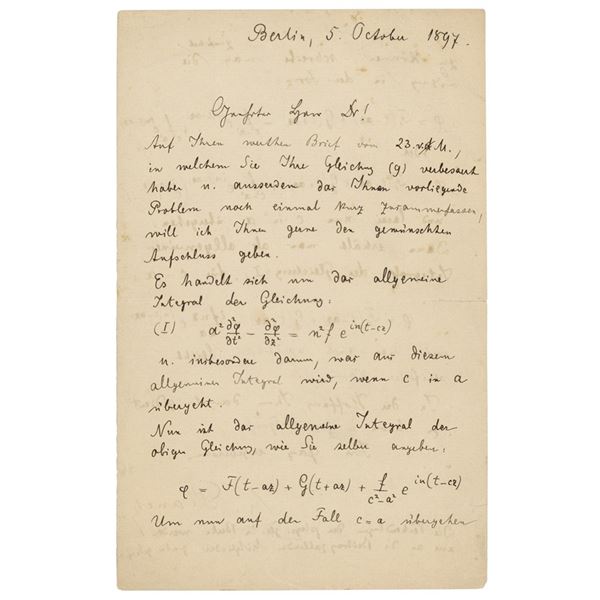 Berlin, 5. October 1897.
Geehrter Herr Dr!
Auf Ihren werthen Brief vom 23. v. M.,
in welchem Sie Ihre Gleichung (9) verbessert
haben u. ausserdem das Ihnen vorliegende
Problem noch einmal kurz zusammenfassen,
will ich Ihnen gerne den gewünschten
Aufschluss geben.
Es handelt sich um das allgemeine
Integral der Gleichung:
(I) a² ∂²φ/∂t² − ∂²φ/∂z² = n² f e^{in(t−cz)}
u. insbesondere darum, was aus diesem
allgemeinen Integral wird, wenn c in a
übergeht.
Nun ist das allgemeine Integral der
obigen Gleichung, wie Sie selber angeben:
φ = F(t−az) + G(t+az) + f/(c²−a²) e^{in(t−cz)}
Um nun auf den Fall c=a übergehen